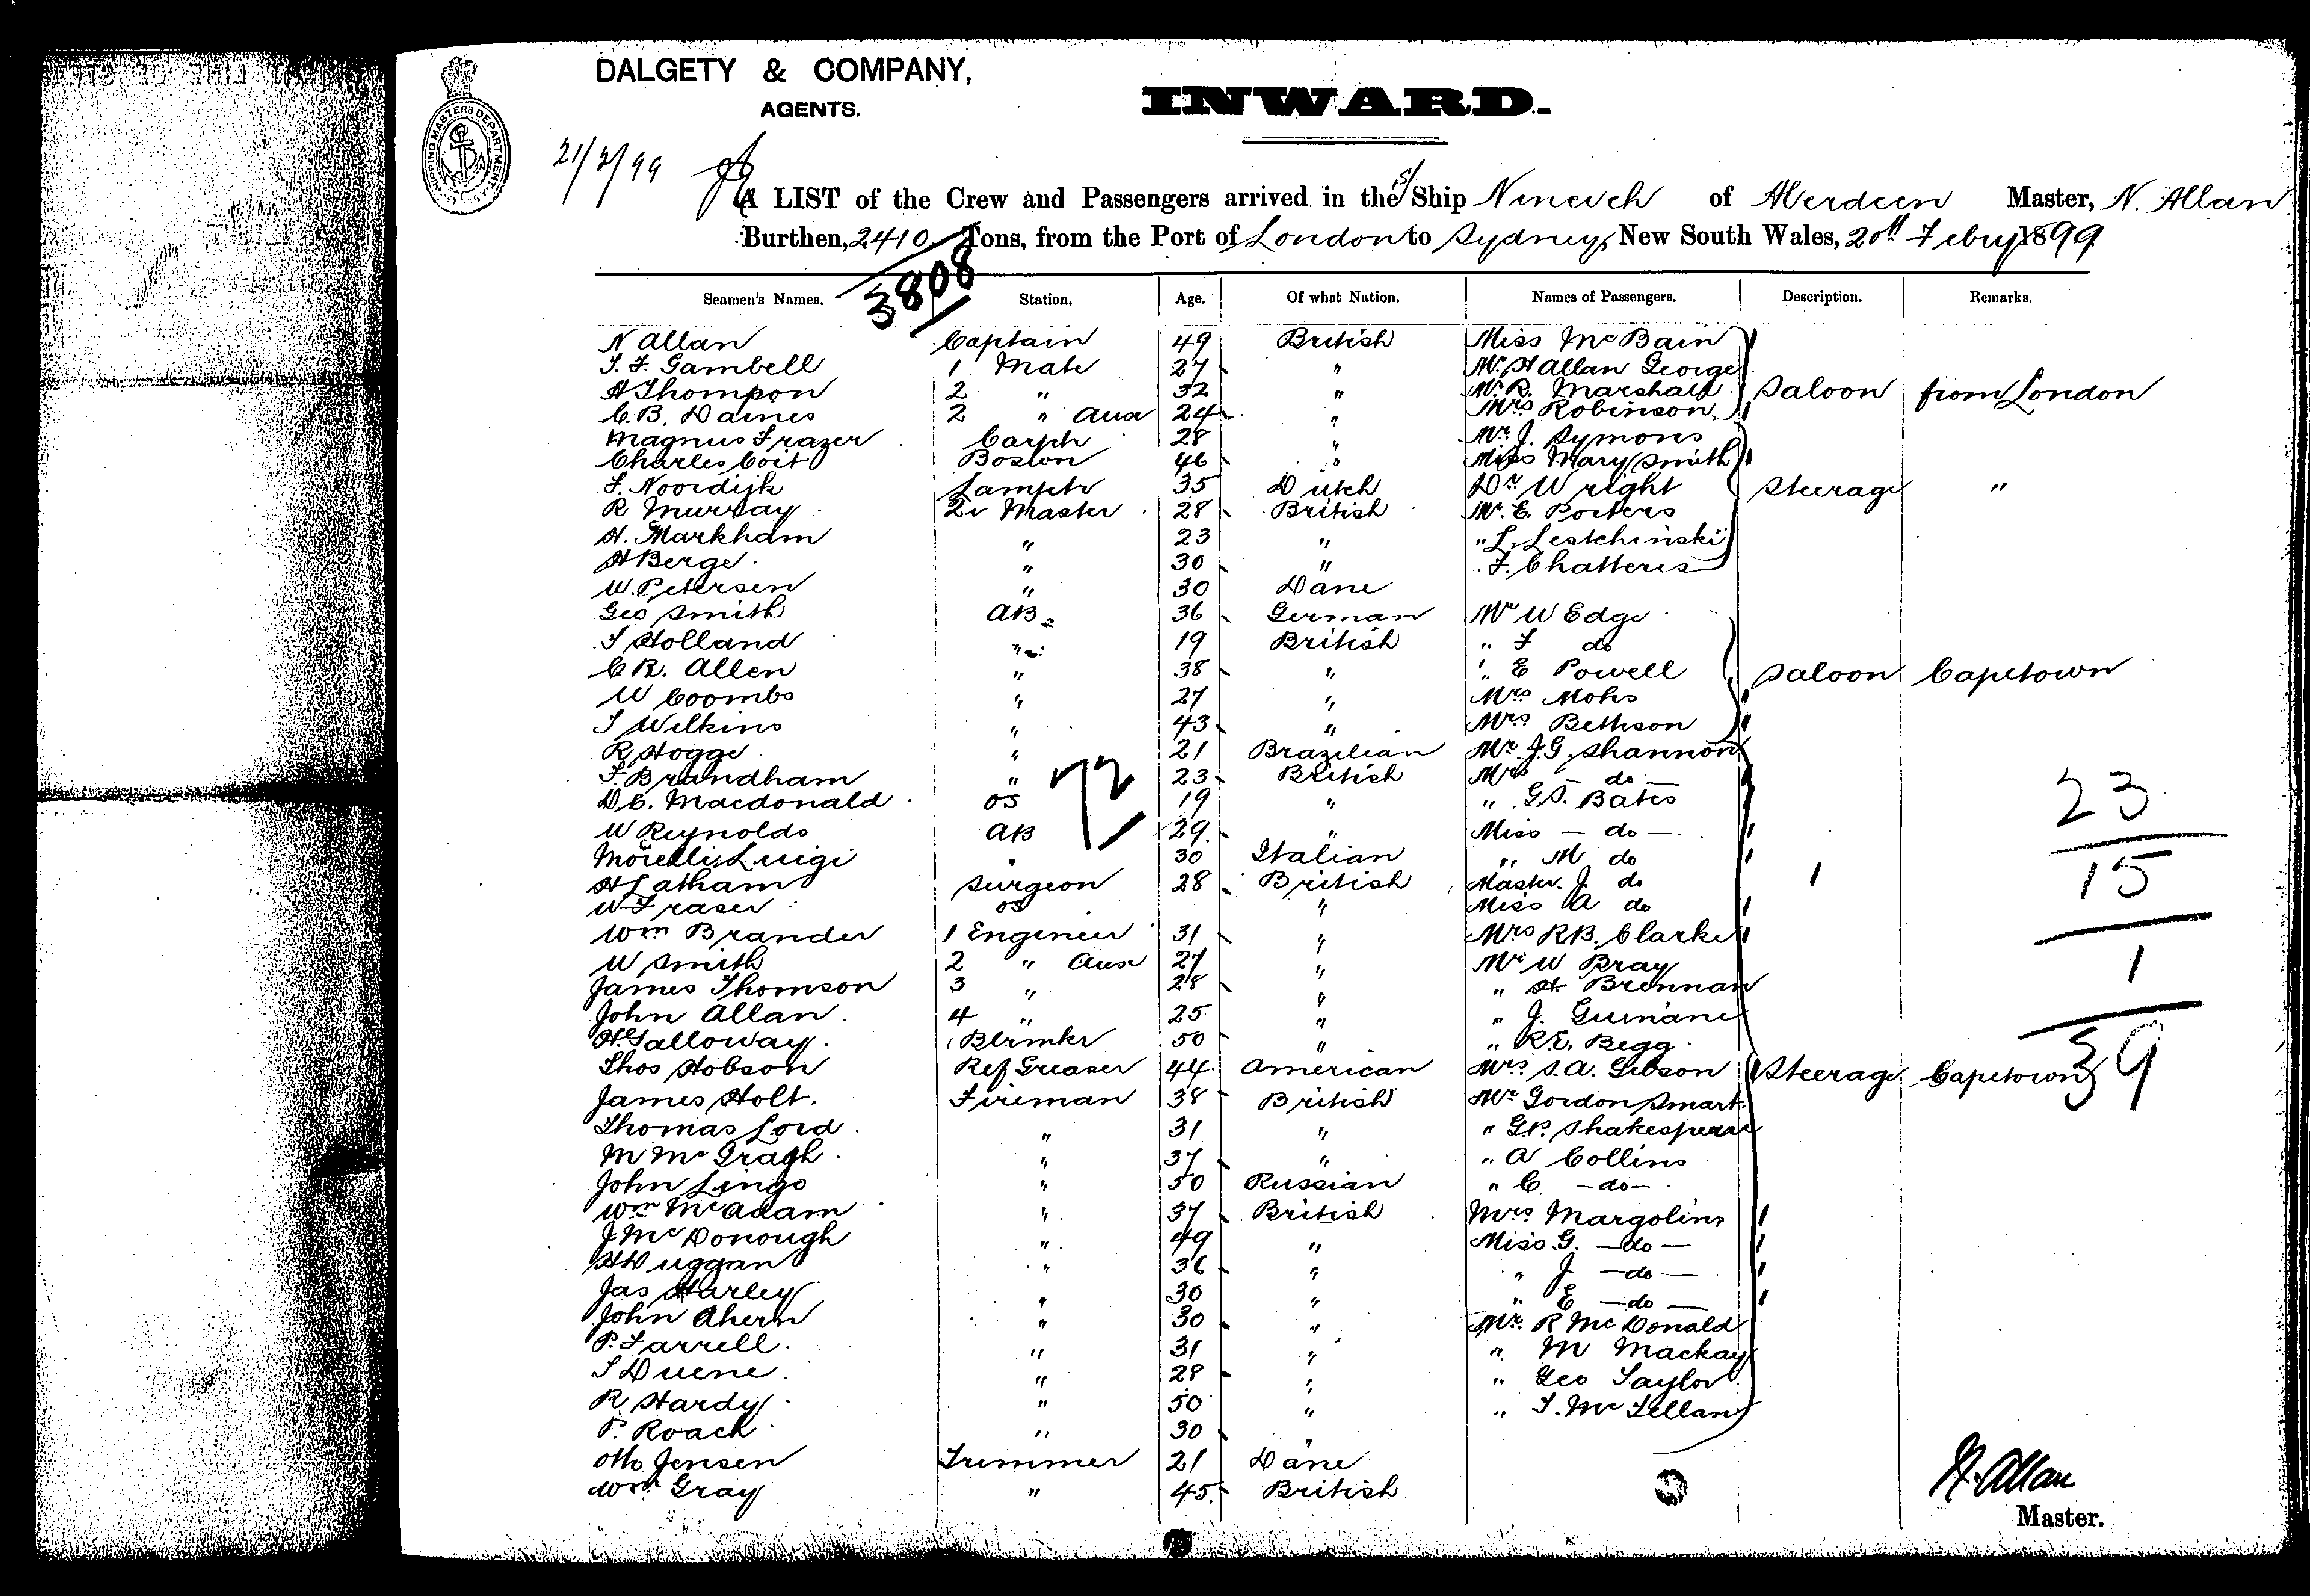 DALGETY & COMPANY,
AGENTS.
INWARD.
SHIPPING MASTERS DEPARTMENT
21/2/99
A LIST of the Crew and Passengers arrived in the S/ Ship Nineveh of Aberdeen Master, N. Allan
Burthen, 2410 Tons, from the Port of London to Sydney, New South Wales, 20th Febry 1899
3808
Seamen's Names. Station. Age. Of what Nation. Names of Passengers. Description. Remarks.
N Allan Captain 49 British Miss McBain
F. F. Gambell 1 Mate 27 " Mr. H Allan George
A Thompson 2 " 32 " Mr. R. Marshall Saloon from London
C. B. Daines 2 " Aux 24 " Mrs Robinson
Magnus Frazer Carptr 28 " Mr. J. Symons
Charles Coit Bosun 46 " Miss Mary Smith
F. Noordijk Lamptr 35 Dutch Dr Wright Steerage "
R Murray Qr Master 28 British Mr. E. Porters
H. Markham " 23 " " L. Lestchinski
A Berge " 30 " " F. Chatteris
W. Petersen " 30 Dane
Geo Smith AB 36 German Mr W Edge
T Holland " 19 British " F do
C R. Allen " 38 " " E Powell Saloon Capetown
W Coombs " 27 " Mrs Mohs
T Wilkins " 43 " Mrs Bethson
R Hogge " 21 Brazilian Mr. J. G. Shannon
F. Brandham " 23 British Mrs - do -
D C. Macdonald OS 19 " " G S. Bates
W Reynolds AB 29 " Miss - do -
Morelli Luigi " 30 Italian " M do
H Latham Surgeon 28 British Master J. do
W Fraser OS " Miss A do
Wm Brander 1 Engineer 31 " Mrs R B. Clarke
W Smith 2 " Aux 27 " Mr W Bray
James Thomson 3 " 28 " " H Brennan
John Allan 4 " 25 " " J. Guinane
H. Galloway Blrmkr 50 " " R. E. Begg
Thos Hobson Ref Greaser 44 American Mrs S. A. Gibson Steerage Capetown
James Holt. Fireman 38 British Mr Gordon Smart
Thomas Lord " 31 " " G P. Shakespeare
M McGragh " 37 " " A Collins
John Lingo " 50 Russian " C. - do -
Wm McAdam " 37 British Mrs Margolins
J McDonough " 49 " Miss G. - do -
H Duggan " 36 " " J - do -
Jas Harley " 30 " " E - do -
John Ahern " 30 " Mr. R McDonald
P. Farrell " 31 " " M Mackay
T Duene " 28 " " Geo Taylor
R Hardy " 50 " " T. McLellan
P. Roach " 30 "
Otto Jensen Trimmer 21 Dane
Wm Gray " 45 British
72
23
15
1
39
N. Allan
Master.